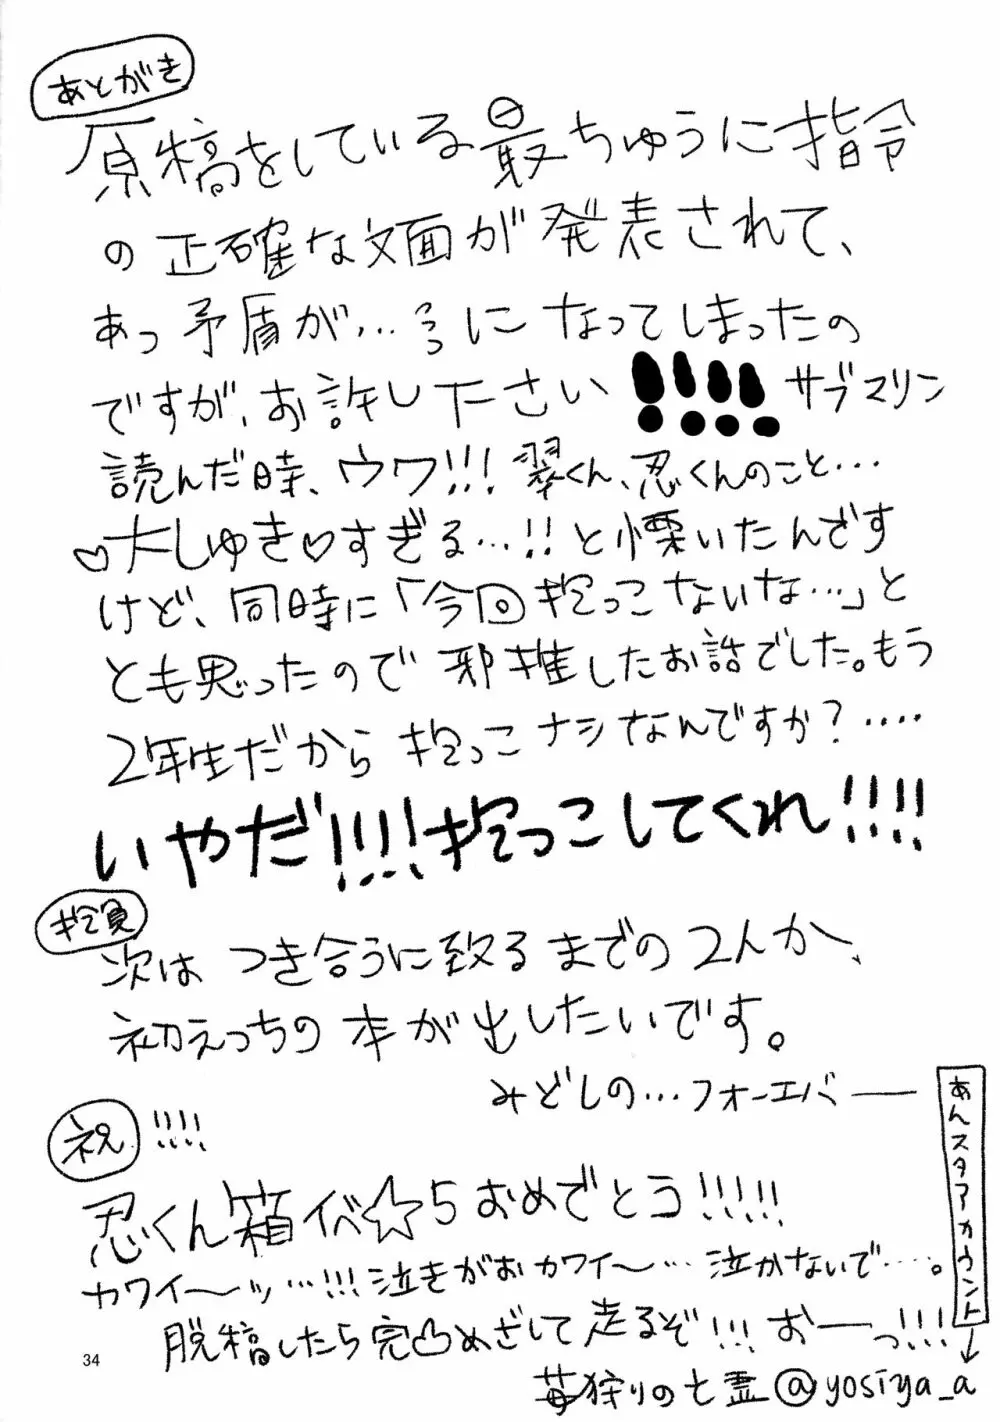 あとがき
原稿をしている最ちゅうに指令
の正確な文面が発表されて、
あっ矛盾が…っっになってしまったの
ですが、お許し下さい!!!!サブマリン
読んだ時、ウワ!!!翠くん、忍くんのこと…
♡大しゅき♡すぎる…!!と慄いたんです
けど、同時に「今回抱っこないな…」と
とも思ったので邪推したお話でした。もう
2年生だから抱っこナシなんですか?‥‥
いやだ!!!!抱っこしてくれ!!!!
次は つき合うに致るまでの2人か、
初えっちの本が出したいです。
みどしの…フォーエバー
祝!!!!
忍くん箱イベ☆5おめでとう!!!!!
カワイ〜ッ…!!!泣きがおカワイ〜…泣かないで……。
脱稿したら完凸めざして走るぞ!!!おーっ!!!!
あんスタアカウント→
苺狩りの七霊@yosiya_a
34